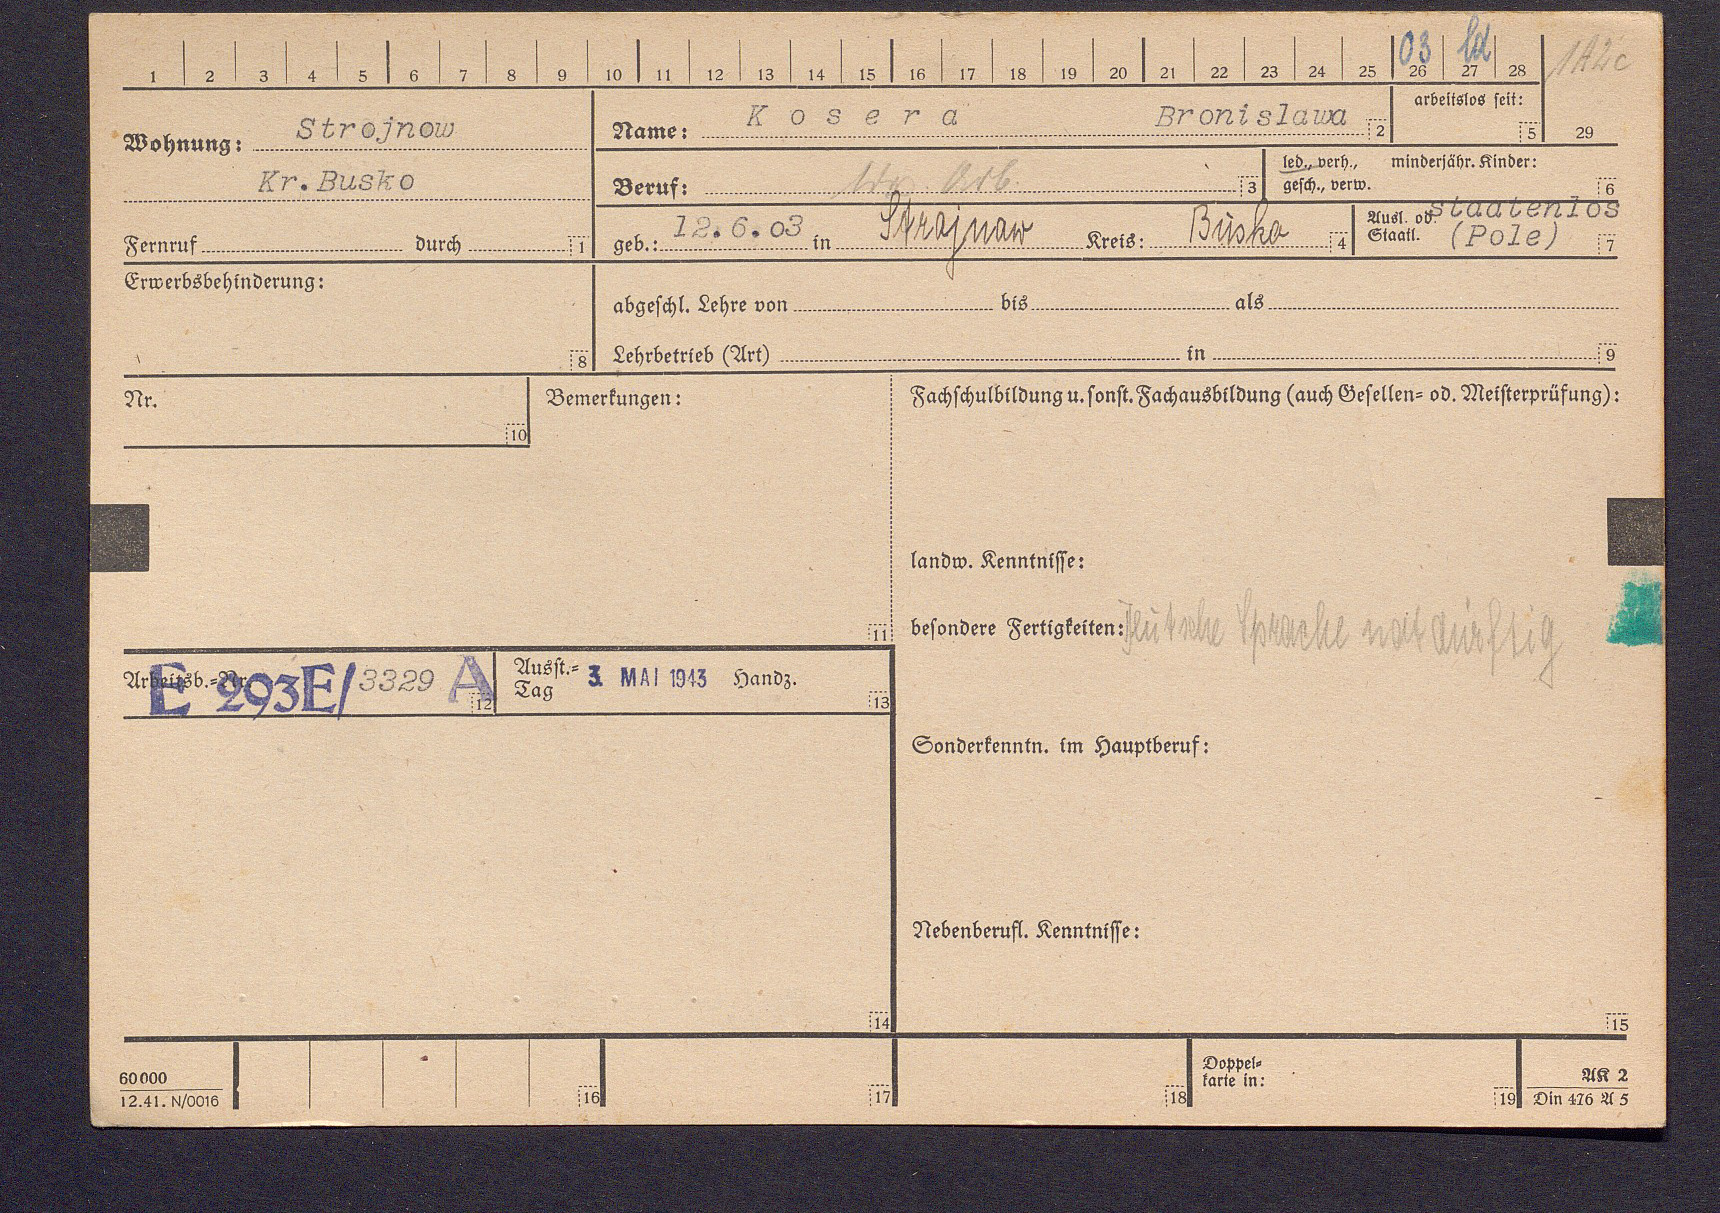 1 2 3 4 5 6 7 8 9 10 11 12 13 14 15 16 17 18 19 20 21 22 23 24 25 26 27 28
03 1A2c
Wohnung: Strojnow
Kr.Busko
Fernruf durch 1
Name: Kosera Bronislawa 2
arbeitslos seit: 5 29
Beruf: Arb. 3
led., verh., minderjähr. Kinder:
gesch., verw. 6
geb.: 12.6.03 in Strojnow Kreis: Busko 4
Ausl. od. staatenlos
Staatl. (Pole) 7
Erwerbsbehinderung: 8
abgeschl. Lehre von bis als
Lehrbetrieb (Art) in 9
Nr. 10
Bemerkungen: 11
Fachschulbildung u. sonst. Fachausbildung (auch Gesellen- od. Meisterprüfung):
landw. Kenntnisse:
besondere Fertigkeiten: Deutsche Sprache notdürftig
Arbeitsb.-Nr. E 293E/3329 A 12
Ausst.-Tag 3. MAI 1943 Handz. 13
Sonderkenntn. im Hauptberuf:
Nebenberufl. Kenntnisse:
14 15
60000
12.41. N/0016
16 17 18
Doppel-
karte in: 19
AK 2
Din 476 A 5